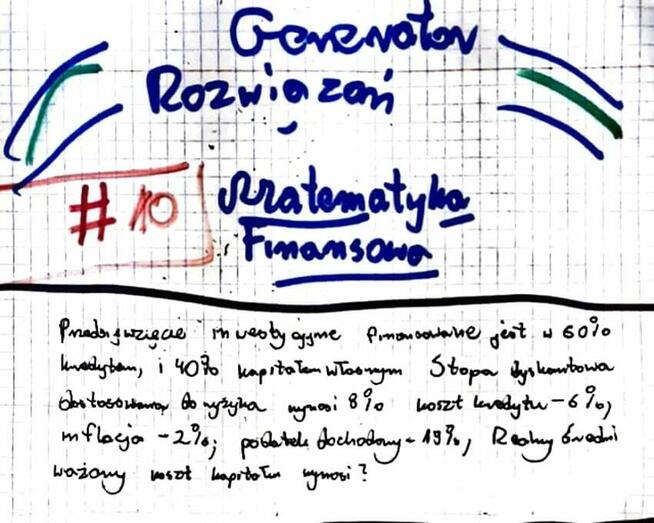 Generator
Rozwiązań
#10
Matematyka
Finansowa
Przedsięwzięcie inwestycyjne finansowane jest w 60%
kredytem, i 40% kapitałem własnym Stopa dyskontowa
dostosowana do ryzyka wynosi 8% koszt kredytu - 6%,
inflacja - 2%; podatek dochodowy - 19%, Realny średni
ważony koszt kapitału wynosi?